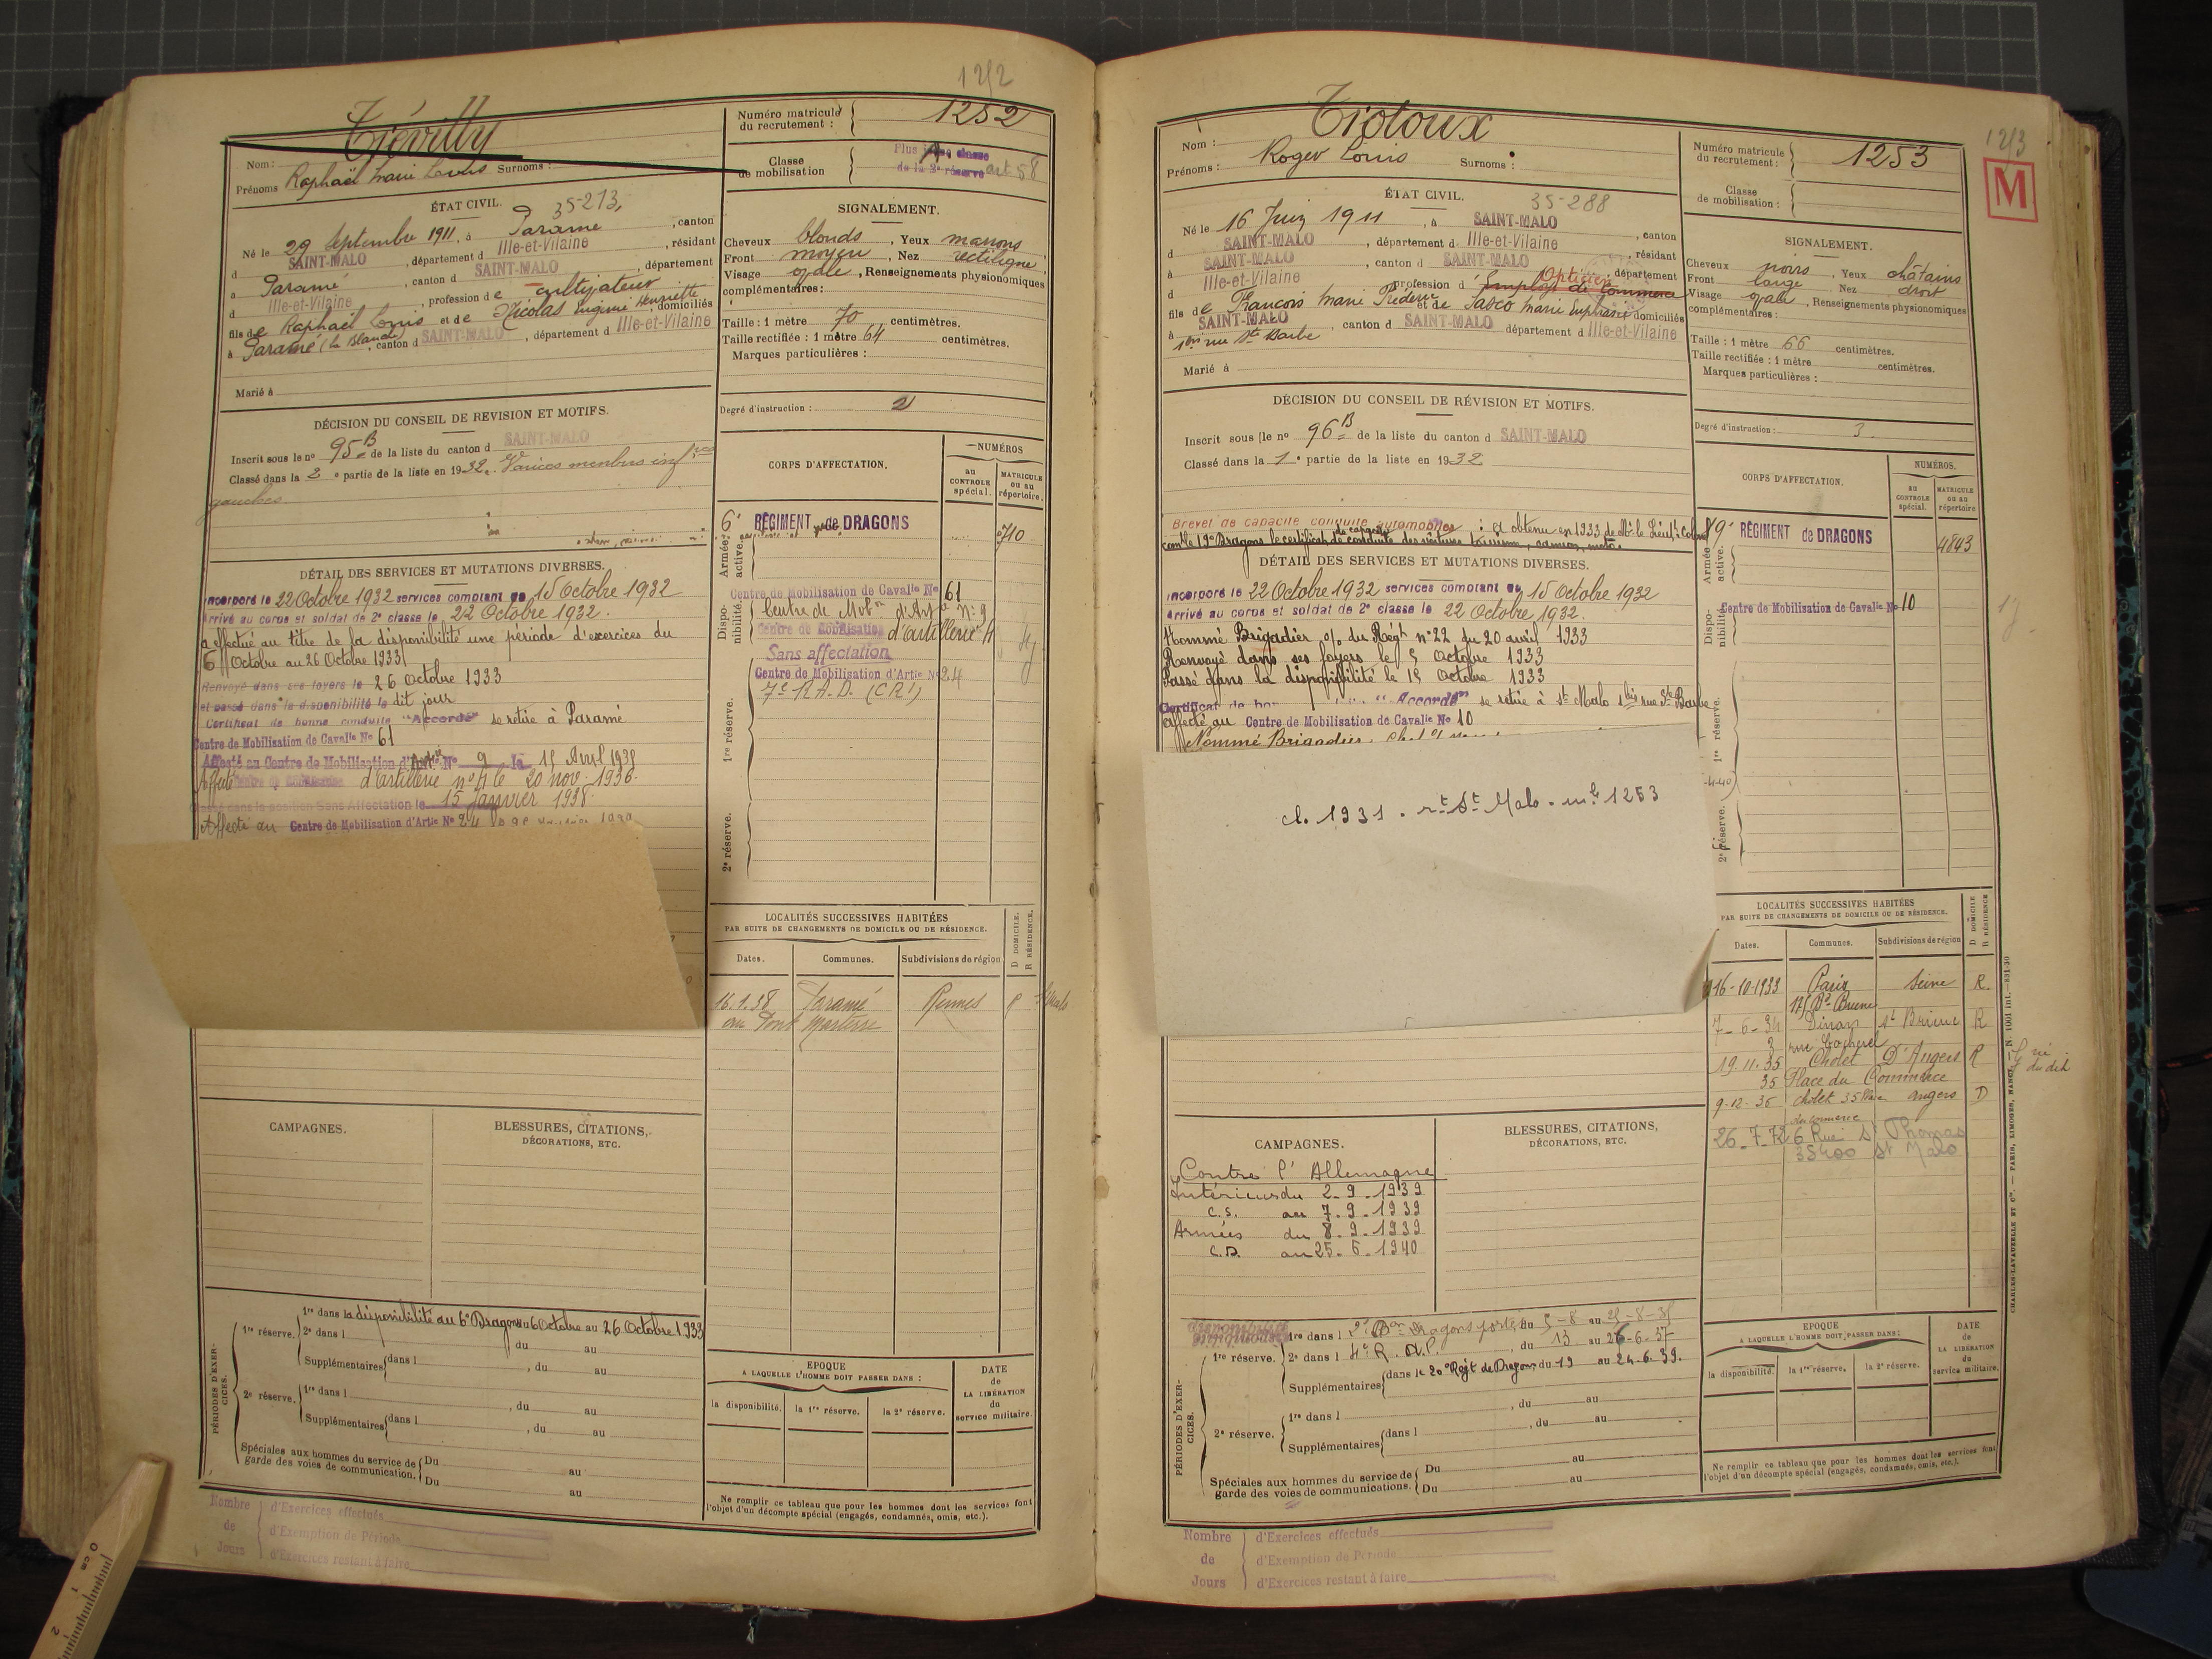 1252
Numéro matricule du recrutement : 1252
Classe de mobilisation
de la 2e réserve art 58
Nom : Trévilly
Prénoms Raphaël Marie Louis Surnoms :
ÉTAT CIVIL. 35-213
Né le 29 Septembre 1911, à Paramé, canton
d SAINT-MALO, département d Ille-et-Vilaine, résidant
à Paramé, canton d SAINT-MALO, département
d Ille-et-Vilaine, profession de cultivateur
fils de Raphaël Louis et de Nicolas Eugénie Henriette, domiciliés
à Paramé (La Blanche), canton d SAINT-MALO, département d Ille-et-Vilaine
Marié à
SIGNALEMENT.
Cheveux blonds, Yeux marrons
Front moyen, Nez rectiligne
Visage ovale, Renseignements physionomiques
complémentaires :
Taille : 1 mètre 70 centimètres.
Taille rectifiée : 1 mètre 64 centimètres.
Marques particulières :
Degré d'instruction : 2
DÉCISION DU CONSEIL DE REVISION ET MOTIFS.
Inscrit sous le no 95 B de la liste du canton d SAINT-MALO
Classé dans la 2e partie de la liste en 1932. Varices membres infres
gauches
DÉTAIL DES SERVICES ET MUTATIONS DIVERSES.
Incorporé le 22 Octobre 1932 services comptant du 15 Octobre 1932
Arrivé au corps et soldat de 2e classe le 22 Octobre 1932.
a effectué au titre de la disponibilité une période d'exercices du
6 Octobre au 26 Octobre 1933
Renvoyé dans ses foyers le 26 Octobre 1933
et passé dans la disponibilité le dit jour
Certificat de bonne conduite "Accordé" se retire à Paramé
Centre de Mobilisation de Cavalie No 61
Affecté au Centre de Mobilisation d'Artie No 9 le 15 Avril 1935
Affecté d'artillerie no 4 le 20 nov. 1936
dans la position Sans Affectation le 15 Janvier 1938
Affecté au Centre de Mobilisation d'Artie No 24
CORPS D'AFFECTATION.
NUMÉROS
au CONTROLE spécial.
MATRICULE ou au répertoire.
Armée active.
6e RÉGIMENT de DRAGONS
710
Disponibilité.
Centre de Mobilisation de Cavalie No 61
Centre de Mobon d'Artie No 9
Centre de Mobilisation d'artillerie 4
Sans affectation
1re réserve.
Centre de Mobilisation d'Artie No 24
7e R.A.D. (CR1)
2e réserve.
LOCALITÉS SUCCESSIVES HABITÉES
PAR SUITE DE CHANGEMENTS DE DOMICILE OU DE RÉSIDENCE.
D DOMICILE. R RÉSIDENCE.
Dates. Communes. Subdivisions de région
16.1.38 Paramé Rennes
CAMPAGNES.
BLESSURES, CITATIONS, DÉCORATIONS, ETC.
PÉRIODES D'EXERCICES.
1re réserve. 1re dans la disponibilité au 6e Dragons du 6 Octobre au 26 Octobre 1933
2e dans l du au
Supplémentaires dans l , du au
2e réserve. 1re dans l , du au
Supplémentaires dans l , du au
Spéciales aux hommes du service de garde des voies de communication. Du au
Du au
EPOQUE
A LAQUELLE L'HOMME DOIT PASSER DANS :
la disponibilité. la 1re réserve. la 2e réserve.
DATE de LA LIBÉRATION du service militaire.
Ne remplir ce tableau que pour les hommes dont les services font
l'objet d'un décompte spécial (engagés, condamnés, omis, etc.).
Nombre de Jours
d'Exercices effectués
d'Exemption de Période
d'Exercices restant à faire
0 cm 1 2
M
Numéro matricule du recrutement : 1253
Classe de mobilisation :
Nom :
Prénoms : Roger Louis Surnoms :
ÉTAT CIVIL. 35-288
Né le 16 Juin 1911, à SAINT-MALO, canton
d SAINT-MALO, département d Ille-et-Vilaine, résidant
à SAINT-MALO, canton d SAINT-MALO, département
d Ille-et-Vilaine profession d Employé de Commerce Opticien
fils de François Marie et de Marie domiciliés
à SAINT-MALO, canton d SAINT-MALO département d Ille-et-Vilaine
1bis rue Ste Barbe
Marié à
SIGNALEMENT.
Cheveux noirs, Yeux châtains
Front large Nez droit
Visage ovale, Renseignements physionomiques
complémentaires :
Taille : 1 mètre 66 centimètres.
Taille rectifiée : 1 mètre centimètres.
Marques particulières :
Degré d'instruction : 3.
DÉCISION DU CONSEIL DE RÉVISION ET MOTIFS.
Inscrit sous le no 96 B de la liste du canton d SAINT-MALO
Classé dans la 1e partie de la liste en 1932
Brevet de capacité conduite automobiles : a obtenu en 1933 de Mr le Lieut Colonel
comt le 19e Dragons le certificat de capacité de conduite des voitures tourisme, camion, moto.
DÉTAIL DES SERVICES ET MUTATIONS DIVERSES.
Incorporé le 22 Octobre 1932 services comptant du 15 Octobre 1932
Arrivé au corps et soldat de 2e classe le 22 Octobre 1932.
Nommé Brigadier o/. du Régt no 22 du 20 avril 1933
Renvoyé dans ses foyers le 5 Octobre 1933
Passé dans la disponibilité le 15 Octobre 1933
"Accordé" se retire à St Malo 1bis rue Ste Barbe
affecté au Centre de Mobilisation de Cavalie No 10
cl. 1931 . rt St Malo . mle 1253
CORPS D'AFFECTATION.
NUMÉROS.
au CONTROLE spécial.
MATRICULE ou au répertoire
Armée active.
19e RÉGIMENT de DRAGONS
4843
Disponibilité.
Centre de Mobilisation de Cavalie No 10
1re réserve.
2e réserve.
LOCALITÉS SUCCESSIVES HABITÉES
PAR SUITE DE CHANGEMENTS DE DOMICILE OU DE RÉSIDENCE.
D DOMICILE R RÉSIDENCE
Dates. Communes. Subdivisions de région
16-10-1933 Paris Seine R.
Bd Brune
7-6-34 Dinan St Brieuc R
19.11.35 Cholet D'Angers R
35 Place du Commerce
9-12-36 cholet 35 Place angers D
du Commerce
26-7-72 6 Rue St Thomas
35400 St Malo
CAMPAGNES.
Contre l'Allemagne
Intérieur du 2-9-1939
C.S. au 7-9-1939
Armées du 8-9-1939
C.D. au 25-6-1940
BLESSURES, CITATIONS, DÉCORATIONS, ETC.
PÉRIODES D'EXERCICES.
1re réserve. 1re dans l 2e Bon Dragons portés du 5-8 au 25-8-35
2e dans l 4e R.A.P. , du 13 au 26-6-37
Supplémentaires dans le 20e Régt de Dragons du 19 au 24.6.39.
2e réserve. 1re dans l , du au
Supplémentaires dans l , du au
Spéciales aux hommes du service de garde des voies de communications. Du au
Du au
EPOQUE
A LAQUELLE L'HOMME DOIT PASSER DANS :
la disponibilité. la 1re réserve. la 2e réserve.
DATE de LA LIBÉRATION du service militaire.
Ne remplir ce tableau que pour les hommes dont les services font
l'objet d'un décompte spécial (engagés, condamnés, omis, etc.).
Nombre de Jours
d'Exercices effectués
d'Exemption de Période
d'Exercices restant à faire
CHARLES-LAVAUZELLE ET Cie. — PARIS, LIMOGES, NANCY.